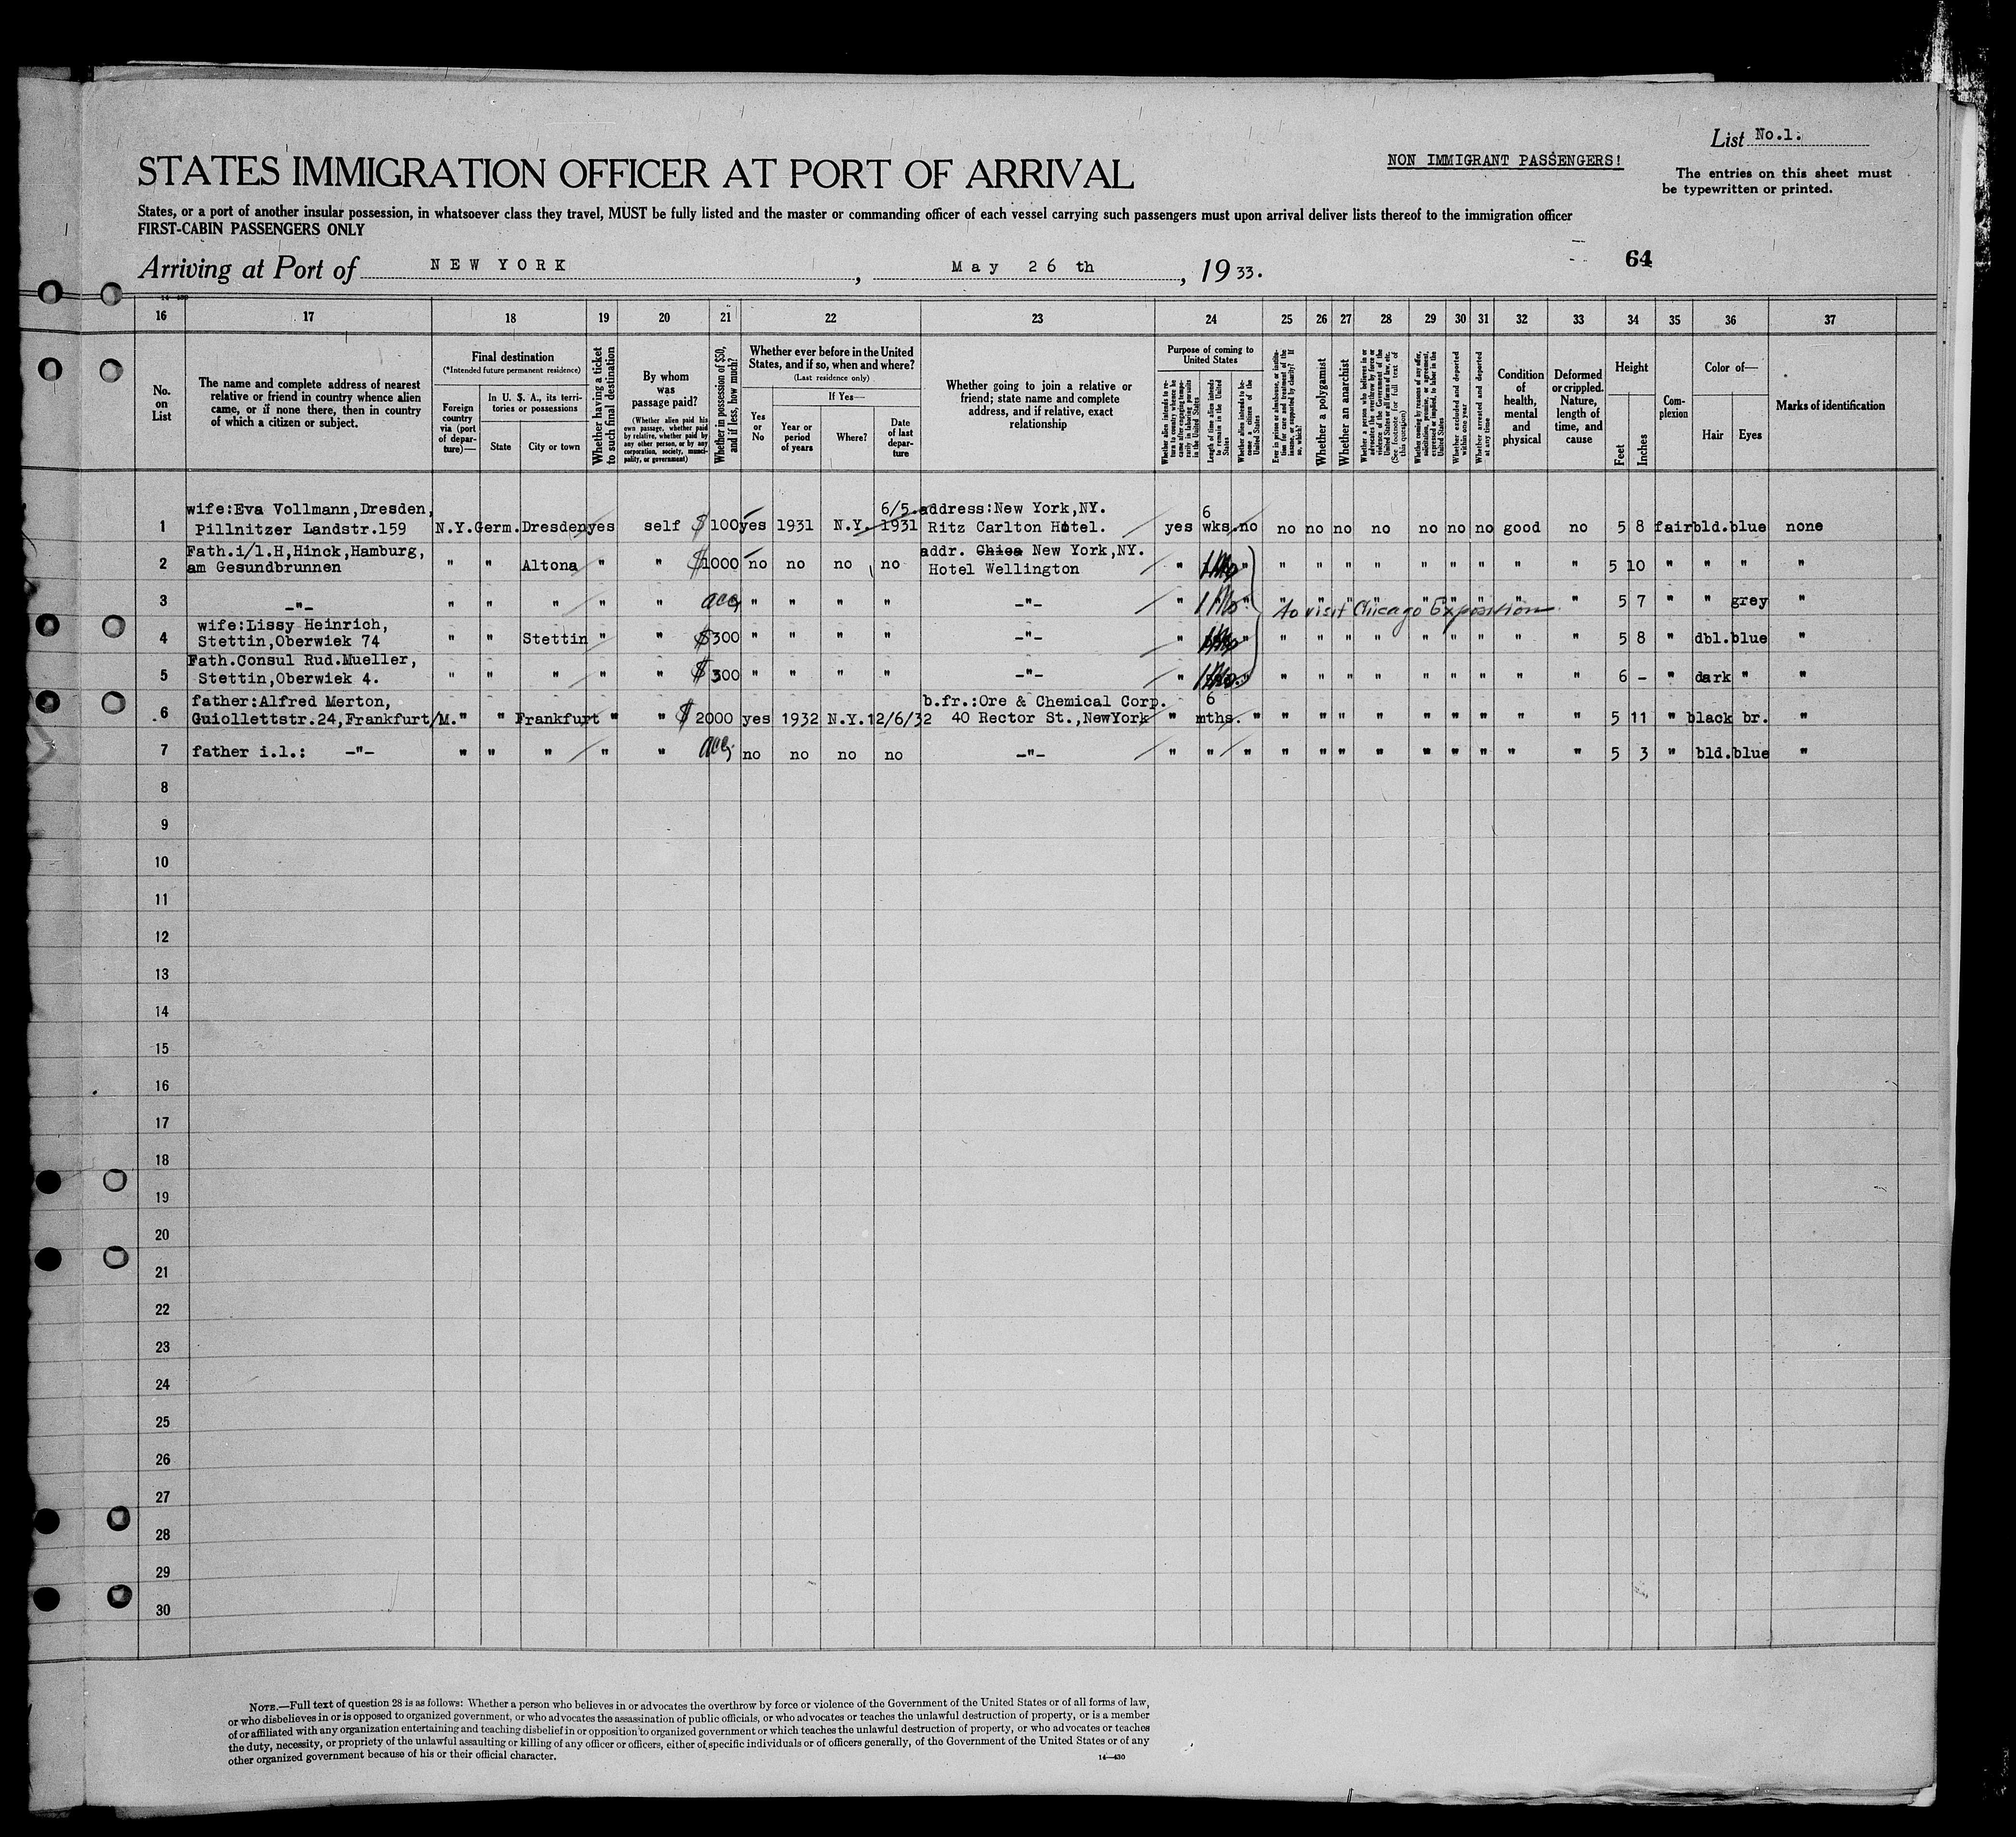 List No.1.
NON IMMIGRANT PASSENGERS!
The entries on this sheet must
be typewritten or printed.
STATES IMMIGRATION OFFICER AT PORT OF ARRIVAL
States, or a port of another insular possession, in whatsoever class they travel, MUST be fully listed and the master or commanding officer of each vessel carrying such passengers must upon arrival deliver lists thereof to the immigration officer
FIRST-CABIN PASSENGERS ONLY
Arriving at Port of NEW YORK, May 26 th, 1933.
64
16 17 18 19 20 21 22 23 24 25 26 27 28 29 30 31 32 33 34 35 36 37
No. on List
The name and complete address of nearest
relative or friend in country whence alien
came, or if none there, then in country
of which a citizen or subject.
Final destination
(*Intended future permanent residence)
Foreign country via (port of departure)—
In U. S. A., its territories or possessions
State
City or town
Whether having a ticket to such final destination
By whom was passage paid?
(Whether alien paid his own passage, whether paid by relative, whether paid by any other person, or by any corporation, society, municipality, or government)
Whether in possession of $50, and if less, how much?
Whether ever before in the United States, and if so, when and where?
(Last residence only)
Yes or No
If Yes—
Year or period of years
Where?
Date of last departure
Whether going to join a relative or
friend; state name and complete
address, and if relative, exact
relationship
Purpose of coming to United States
Whether alien intends to return to country whence he came after engaging temporarily in laboring pursuits in the United States
Length of time alien intends to remain in the United States
Whether alien intends to become a citizen of the United States
Ever in prison or almshouse, or institution for care and treatment of the insane, or supported by charity? If so, which?
Whether a polygamist
Whether an anarchist
Whether a person who believes in or advocates the overthrow by force or violence of the Government of the United States or all forms of law, etc. (See footnote for full text of this question)
Whether coming by reasons of any offer, solicitation, promise, or agreement, expressed or implied, to labor in the United States
Whether excluded and deported within one year
Whether arrested and deported at any time
Condition of health, mental and physical
Deformed or crippled. Nature, length of time, and cause
Height
Feet
Inches
Complexion
Color of—
Hair
Eyes
Marks of identification
wife:Eva Vollmann,Dresden, 6/5. address:New York,NY. 6
1 Pillnitzer Landstr.159 N.Y. Germ. Dresden yes self $ 100 yes 1931 N.Y. 1931 Ritz Carlton Hotel. yes wks. no no no no no no no no good no 5 8 fair bld. blue none
Fath.i/l.H,Hinck,Hamburg, addr. Chica New York,NY.
2 am Gesundbrunnen " " Altona " " $1000 no no no no Hotel Wellington " " " " " " " " " " " 5 10 " " " "
3 -"- " " " " " acc " " " " -"- " 1 Mo " " " " " " " " " " 5 7 " " grey "
To visit Chicago Exposition
wife:Lissy Heinrich,
4 Stettin,Oberwiek 74 " " Stettin " " $300 " " " " -"- " " " " " " " " " " " 5 8 " dbl. blue "
Fath.Consul Rud.Mueller,
5 Stettin,Oberwiek 4. " " " " " $ 300 " " " " -"- " " " " " " " " " " " 6 - " dark " "
father:Alfred Merton, b.fr.:Ore & Chemical Corp. 6
6 Guiollettstr.24,Frankfurt/M. " " Frankfurt " " $ 2000 yes 1932 N.Y. 12/6/32 40 Rector St.,NewYork " mths. " " " " " " " " " " 5 11 " black br. "
7 father i.l.: -"- " " " " " acc. no no no no -"- " " " " " " " " " " " " 5 3 " bld. blue "
8
9
10
11
12
13
14
15
16
17
18
19
20
21
22
23
24
25
26
27
28
29
30
NOTE.—Full text of question 28 is as follows: Whether a person who believes in or advocates the overthrow by force or violence of the Government of the United States or of all forms of law,
or who disbelieves in or is opposed to organized government, or who advocates the assassination of public officials, or who advocates or teaches the unlawful destruction of property, or is a member
of or affiliated with any organization entertaining and teaching disbelief in or opposition to organized government or which teaches the unlawful destruction of property, or who advocates or teaches
the duty, necessity, or propriety of the unlawful assaulting or killing of any officer or officers, either of specific individuals or of officers generally, of the Government of the United States or of any
other organized government because of his or their official character.
14—430